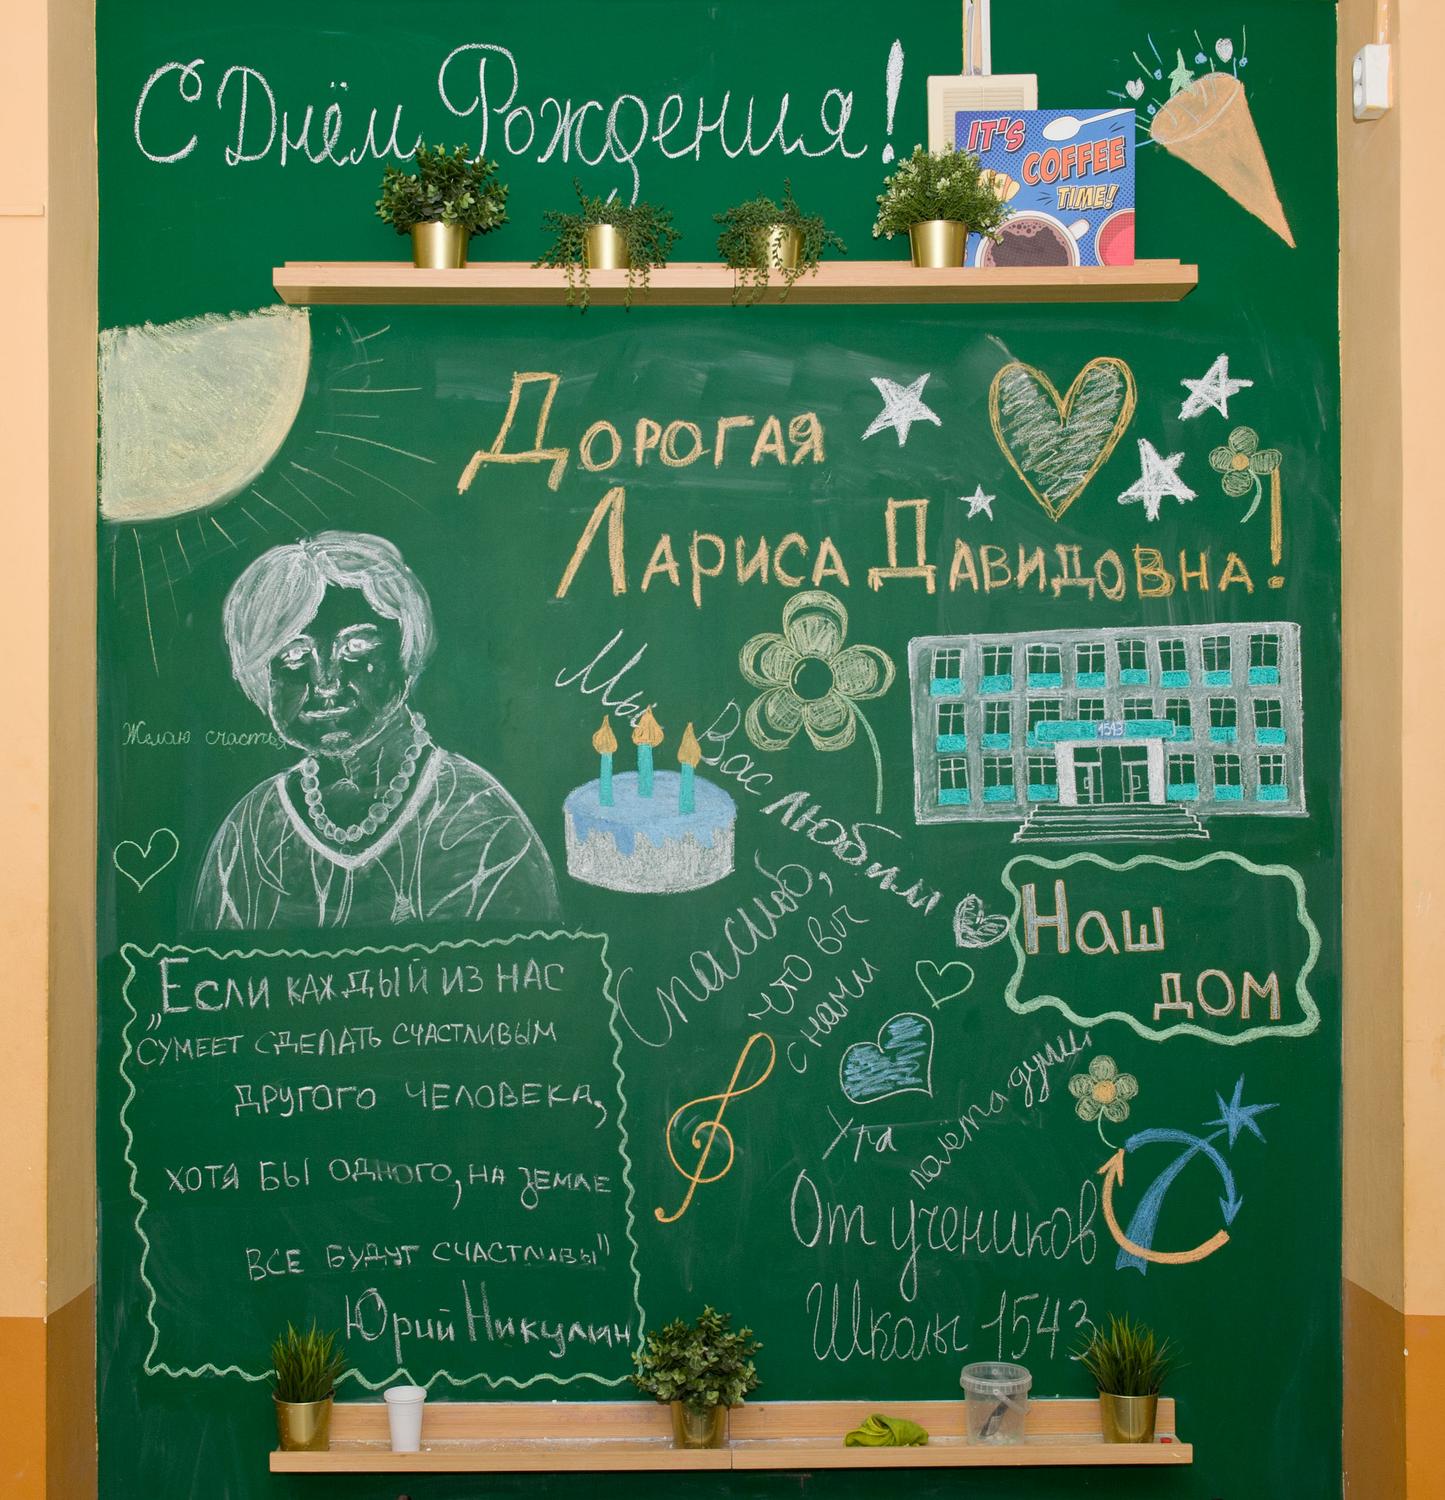 С Днём Рождения!
IT'S
COFFEE
TIME!
Дорогая
Лариса Давидовна!
Мы
Вас любим
1543
Желаю счастья
Спасибо,
что вы
с нами
Наш
дом
„Если каждый из нас
сумеет сделать счастливым
другого человека,
хотя бы одного, на земле
все будут счастливы"
Юрий Никулин
Ура
полёта души
От учеников
Школы 1543